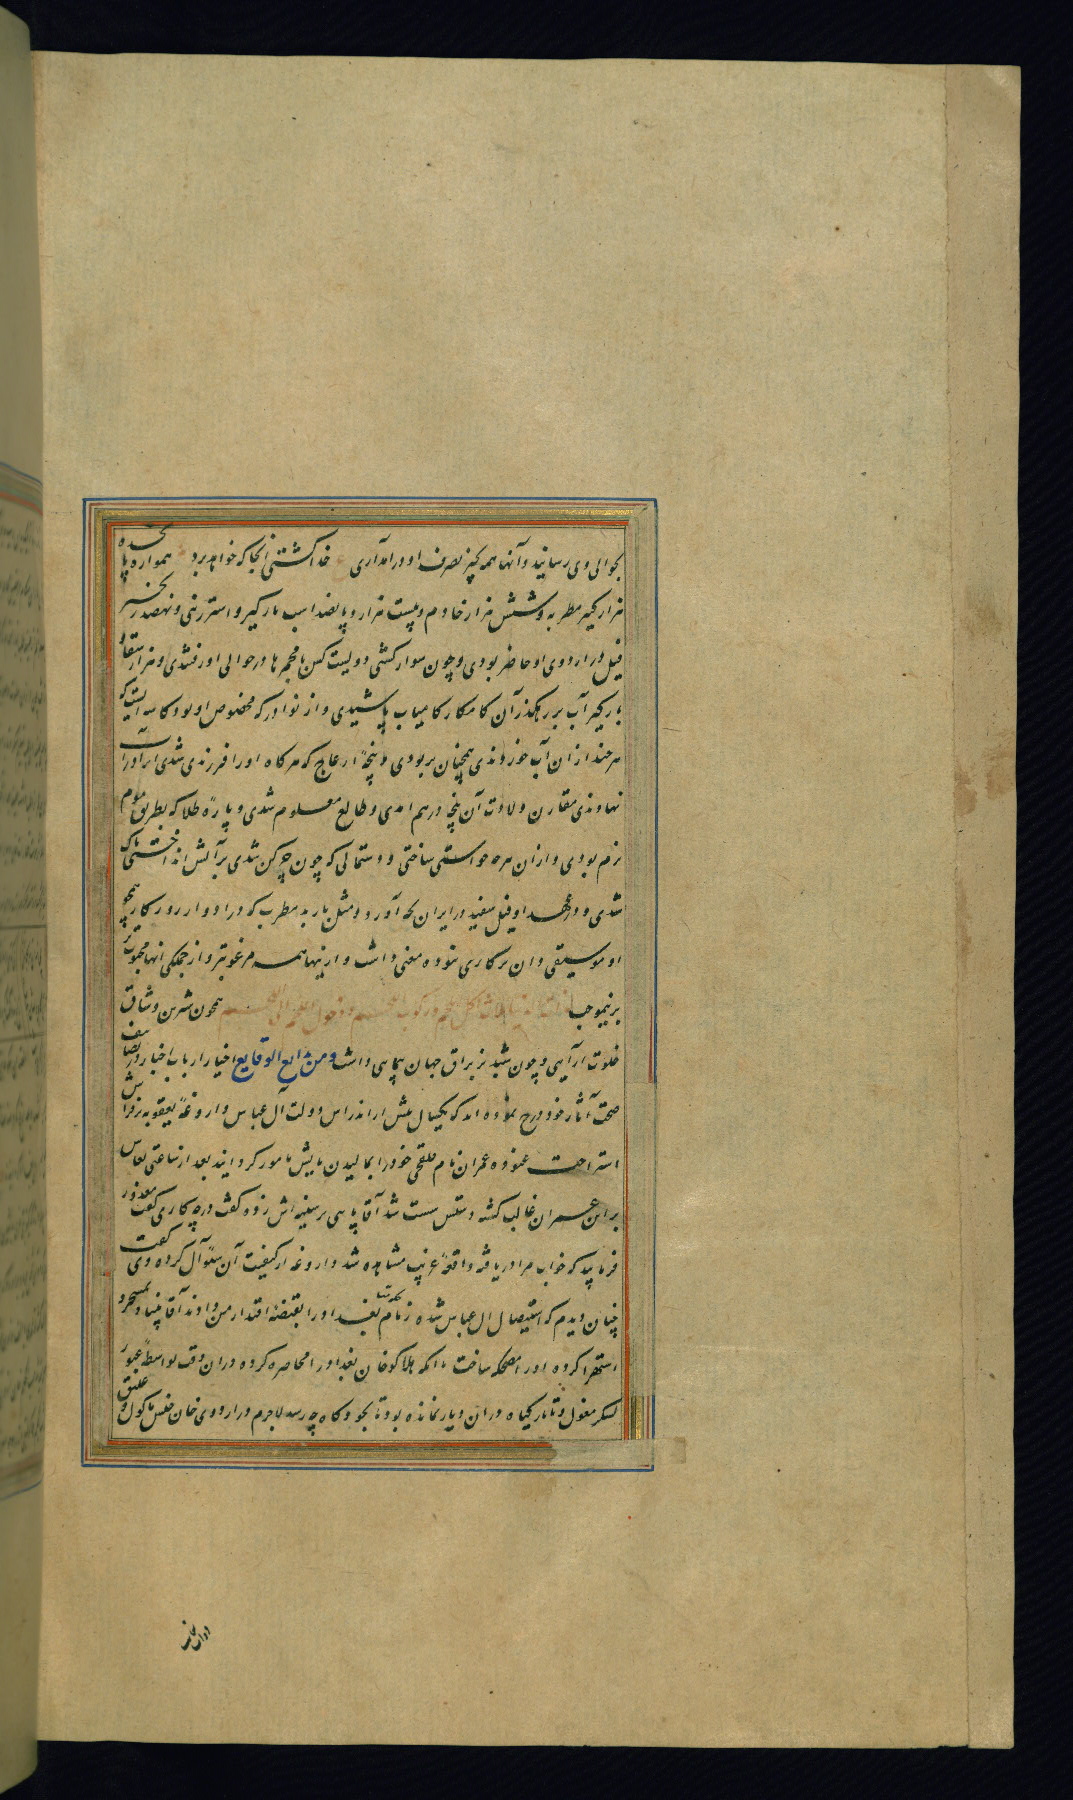 بحوالی وی رسانید و آنها همه بحیز تصرف او درآمد آری خدا کشتی آنجا که خواهد برد همواره پا
هزار کنیز مطربه و شش هزار خادم و بیست هزار و پانصد اسب بارکیر و استر زینی و نهصد زنجیر
فیل در اردوی او حاضر بودی و چون سوار کشتی دویست کس با مجمرها در حوالی او رفتندی و هزار سقا و
بارکیر آب بر رهکذر آن کامکار کامیاب پاشیدی و از نوادر که مخصوص او بود کاسه ایست که
هر چند ازان آب خوردندی همچنان پر بودی و پنجهٔ از عاج که هر کاه او را فرزندی شدی آن را در آب
نهادندی مقارن ولادت آن پنجه درهم آمدی و طالع معلوم شدی و پارهٔ طلا که بطریق موم
نرم بودی و ازان هرچه خواستی ساختی و دستمالی که چون چرکن شدی بر آتش انداختی پاک
شدی و در عهد او فیل سفید در ایران بچه آورد و مثل باربد مطرب که در ادوار روزکار همچو
او موسیقی دان پرکاری نبوده مغنی داشت و از اینها همه مرغوبتر و از جملکی آنها محبوبتر
برینموجب همچون شیرین وشاق
خلوت آرایی و چون شبدیز براق جهان پیمایی داشت و من بدایع الوقایع اخیار ارباب اخبار در تصانیف
صحت آثار خود درج نموده اند که یکسال پیش از اندراس دولت آل عباس داروغهٔ یعقوبه بر فراش
استراحت غنوده عمران نام ملحقی خود را بمالیدن پایش مامور کردانید بعد از ساعتی نعاس
بر این عمران غالب کشته دستش سست شد آقا پایی بر سینه اش زده کفت در چه کاری کفت معذور
فرمایید که خواب مرا دریافته واقعهٔ غریب مشاهده شد داروغه از کیفیت آن سؤال کرده وی کفت
چنان دیدم که استیصال آل عباس شده زمام حکومت بغداد را بقبضهٔ اقتدار من دادند آقا بنیاد تمسخر و
استهزا کرده او را مضحکه ساخت تا آنکه هلاکو خان بغداد را محاصره کرده دران وقت بواسطهٔ عبور
لشکر مغول و تاتار کیاه دران دیار نمانده بود تا بجو و کاه چه رسد لاجرم در اردوی خان جنس ماکول و علیق
دواب نایاب